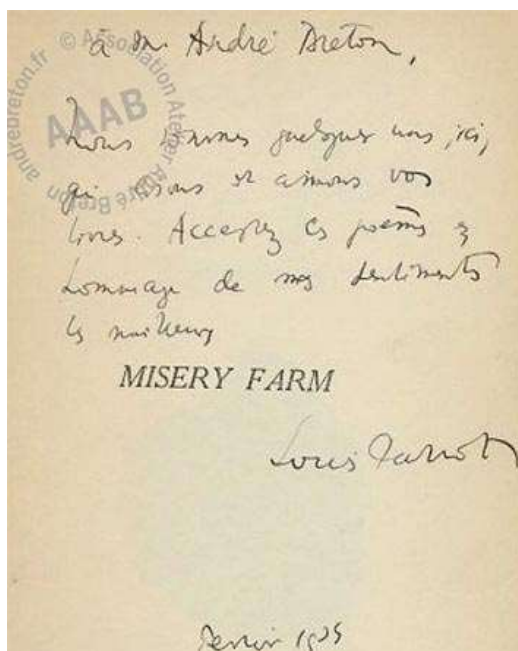 à M. André Breton,
© Association Atelier André Breton andrebreton.fr
AAAB
Nous sommes quelques uns, ici,
qui lisons et aimons vos
livres. Acceptez ces poèmes en
hommage de mes sentiments
les meilleurs
MISERY FARM
Louis Parrot
1935